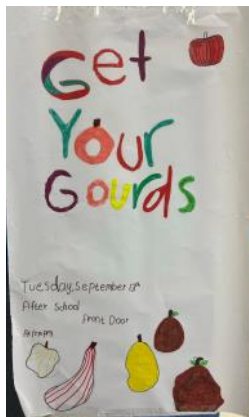 Get
Your
Gourds
Tuesday, September 13th
After School
Front Door